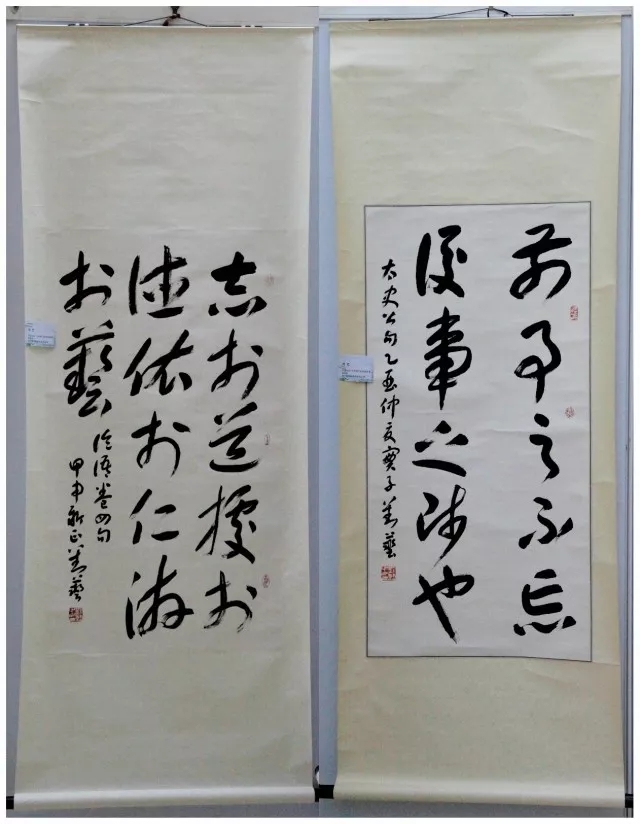 志於道據於
德依於仁游
於藝
論語卷四句
甲申新正藝
前事之不忘
後事之師也
太史公句乙酉仲夏寶子藝